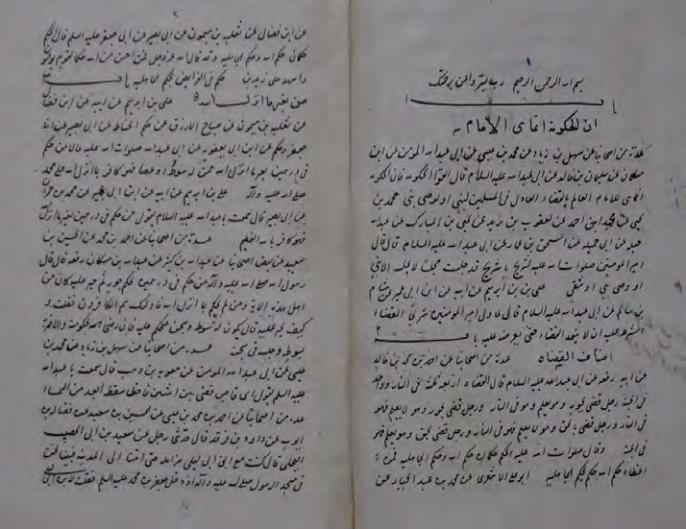 بسم الله الرحمن الرحيم رب يسر واعن برحمتك
باب
ان الحكومة انما هي الى الامام
عدة من اصحابنا عن سهل بن زياد عن محمد بن عيسى عن ابي عبد الله المؤمن عن ابن
مسكان عن سليمان بن خالد عن ابي عبد الله عليه السلام قال اتقوا الحكومة فان الحكومة
انما هي للامام العالم بالقضاء العادل في المسلمين لنبي او وصي نبي محمد بن
يحيى عن محمد بن احمد عن يعقوب بن يزيد عن يحيى بن المبارك عن عبد الله
جبلة عن ابي جميلة عن اسحق بن عمار عن ابي عبد الله عليه السلام قال قال
امير المؤمنين صلوات الله عليه لشريح يا شريح قد جلست مجلسا لا يجلسه الا نبي
او وصي نبي او شقي علي بن ابرهيم عن ابيه عن ابن ابي عمير عن هشام
بن سالم عن ابي عبد الله عليه السلام قال لما ولى امير المؤمنين شريحا القضاء
اشترط عليه ان لا ينفذ القضاء حتى يعرضه عليه باب
اصناف القضاة عدة من اصحابنا عن احمد بن محمد بن خالد
عن ابيه رفعه عن ابي عبد الله عليه السلام قال القضاة اربعة ثلثة في النار وواحد
في الجنة رجل قضى بجور وهو يعلم فهو في النار ورجل قضى بجور وهو لا يعلم فهو
في النار ورجل قضى بالحق وهو لا يعلم فهو في النار ورجل قضى بالحق وهو يعلم فهو
في الجنة وقال صلوات الله عليه الحكم حكمان حكم الله وحكم الجاهلية فمن
اخطأ حكم الله حكم بحكم الجاهلية ابو علي الاشعري عن محمد بن عبد الجبار عن
عن ابن فضال عن ثعلبة بن ميمون عن ابي بصير عن ابي جعفر عليه السلم قال الحكم
حكمان حكم الله وحكم الجاهلية وقد قال الله عز وجل ومن احسن من الله حكما لقوم يوقنون
واشهد على زيد بن حكم في الفرايض بحكم الجاهلية باب
من بغير ما انزل الله علي بن ابرهيم عن ابيه عن ابن فضال
عن ثعلبة بن ميمون عن صباح الازرق عن حكم الحناط عن ابي بصير عن ابي
جعفر وحكم عن ابن ابي يعفور عن ابي عبد الله صلوات الله عليه قالا من حكم
في درهمين بغير ما انزل الله ممن له سوط او عصا فهو كافر بما انزل الله على محمد
صلى الله عليه وآله علي بن ابرهيم عن ابيه عن ابن ابي عمير عن محمد بن حمران
عن ابي بصير قال سمعت ابا عبد الله عليه السلام يقول من حكم في درهمين بغير ما انزل الله
فهو كافر بالله العظيم عدة من اصحابنا عن احمد بن محمد عن الحسين بن
سعيد عن بعض اصحابنا عن عبد الله بن كثير عن عبد الله بن مسكان رفعه قال قال
رسول الله صلى الله عليه وآله من حكم في درهمين بحكم جور ثم جبر عليه كان من
اهل هذه الآية ومن لم يحكم بما انزل الله فاولئك هم الكافرون فقلت و
كيف يجبر عليه فقال يكون له سوط وسجن فيحكم عليه فان رضي بحكومته والا ضربه
بسوطه وحبسه في سجنه عدة من اصحابنا عن سهل بن زياد عن محمد بن
عيسى عن ابي عبد الله المؤمن عن معوية بن وهب قال سمعت ابا عبد الله
عليه السلم يقول اي قاض قضى بين اثنين فاخطأ سقط ابعد من السماء
عدة من اصحابنا عن احمد بن محمد بن عيسى عن الحسين بن سعيد عن فضالة بن
ايوب عن داود بن فرقد قال حدثني رجل عن سعيد بن ابي الخضيب
البجلي قال كنت مع ابن ابي ليلى مزامله حتى اتينا الى المدينة فبينا نحن
في مسجد الرسول صلى الله عليه وآله اذ دخل جعفر بن محمد عليه السلم فقلت لابن ابي